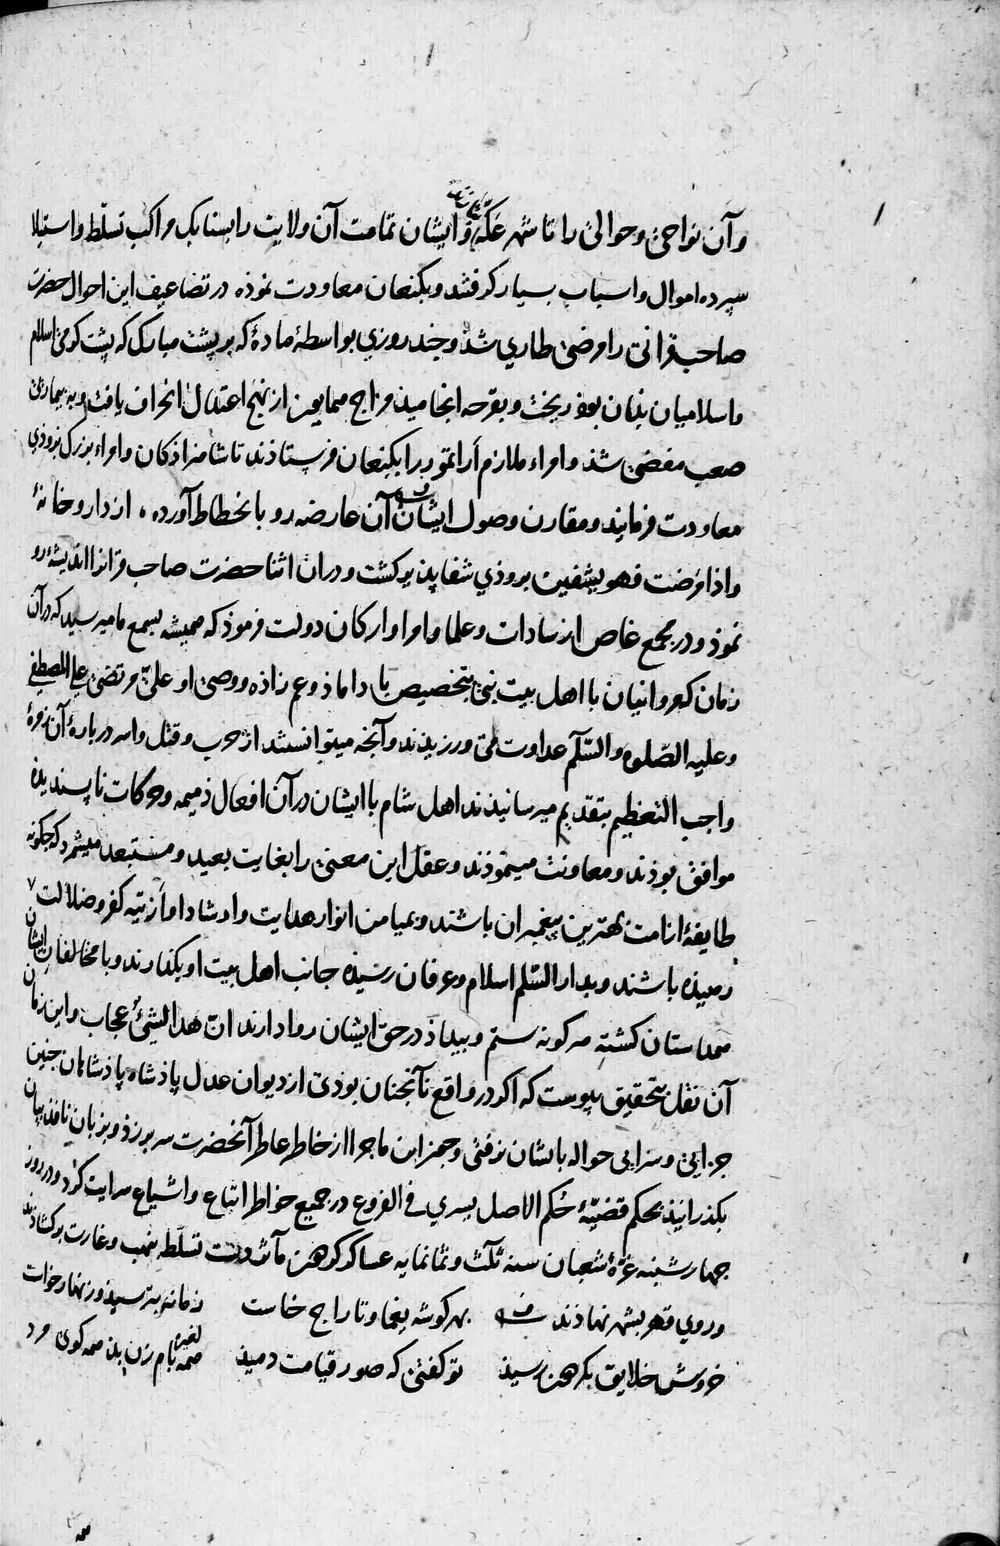 وآن نواحی وحوالی را تا شهر عکّه و ایشان تمامت آن ولایت را بسنابک مراکب تسلّط واستیلا
سپرده اموال واسباب بسیار کرفتند وبکنعان معاودت نموذه در تضاعیف این احوال حضرت
صاحبقرانی را مرضی طاری شد وچند روزی بواسطهٔ مادهٔ که بر پشت مبارک که پشت کرمی اسلام
واسلامیان بذان بوذ ریخت وبقرحه انجامید مزاج همایون از نهج اعتدال انحراف یافت وبه بیماری
صعب مفضی شذ وامراء ملازم امراء تمور را بکنعان فرستاذند تا شاهزاذکان وامراء بزرک بزوذی
معاودت فرمایند ومقارن وصول ایشان آن عارضه رو بانحطاط آورده ، از داروخانهٔ
واذا مرضت فهو یشفین بروذی شفا پدید کشت ودران اثنا حضرت صاحب قرانرا اندیشهٔ رو
نموذ ودر مجمع خاص از سادات وعلما وامرا وارکان دولت فرموذ که همیشه بسمع ما میرسید که درآن
زمان که مروانیان با اهل بیت نبی بتخصیص با داماذ وعم زاذه ووصی او علیّ مرتضی علی المصطفی
وعلیه الصّلوه والسّلم عداوت می ورزیذند وآنچه میتوانستند از حرب وقتل واسر دربارهٔ آن زمرهٔ
واجب التعظیم بتقدیم میرسانیذند اهل شام با ایشان درآن افعال ذمیمه وحرکات ناپسندیذه
موافق بوذند ومعاونت مینموذند وعقل این معنی را بغایت بعید ومستبعد میشمرد که چکونه
طایفهٔ از امت بهترین پیغمبران باشند وبمیامن انوار هدایت وارشاد او از تیه کفر وضلالت
رمیذه باشند وبدار السّلم اسلام وعرفان رسیذه جانب اهل بیت او بکذارند وبا مخالفان ایشان
همداستان کشته هر کونه ستم وبیداذ در حق ایشان روا دارند انّ هذا لشیٔ عجاب واین زمان
آن نقل بتحقیق پیوست که اکر در واقع نآنچنان بوذی از دیوان عدل پاذشاه پاذشاهان چنین
جزایی وسزایی حواله بایشان نرفتی وچون این ماجرا از خاطر عاطر آنحضرت سر بر زد وبر زبان نافذ بیان
بکذرانیذ بحکم قضیّهٔ حُکم الاصل یسری فی الفروع در جمیع خواطر اتباع واشیاع سرایت کرد ودر روز
چهارشنبه غرّهٔ شعبان سنه ثلث وثمانمایه عساکر کردون مآثر دست تسلّط بنهب وغارت برکشاذند
وروی قهر بشهر نهاذند بهر کوشه یغما وتاراج خاست زمانه بترسیذ وزنهار خواست
خروش خلایق بکردون رسیذ تو کفتی که صور قیامت دمیذ